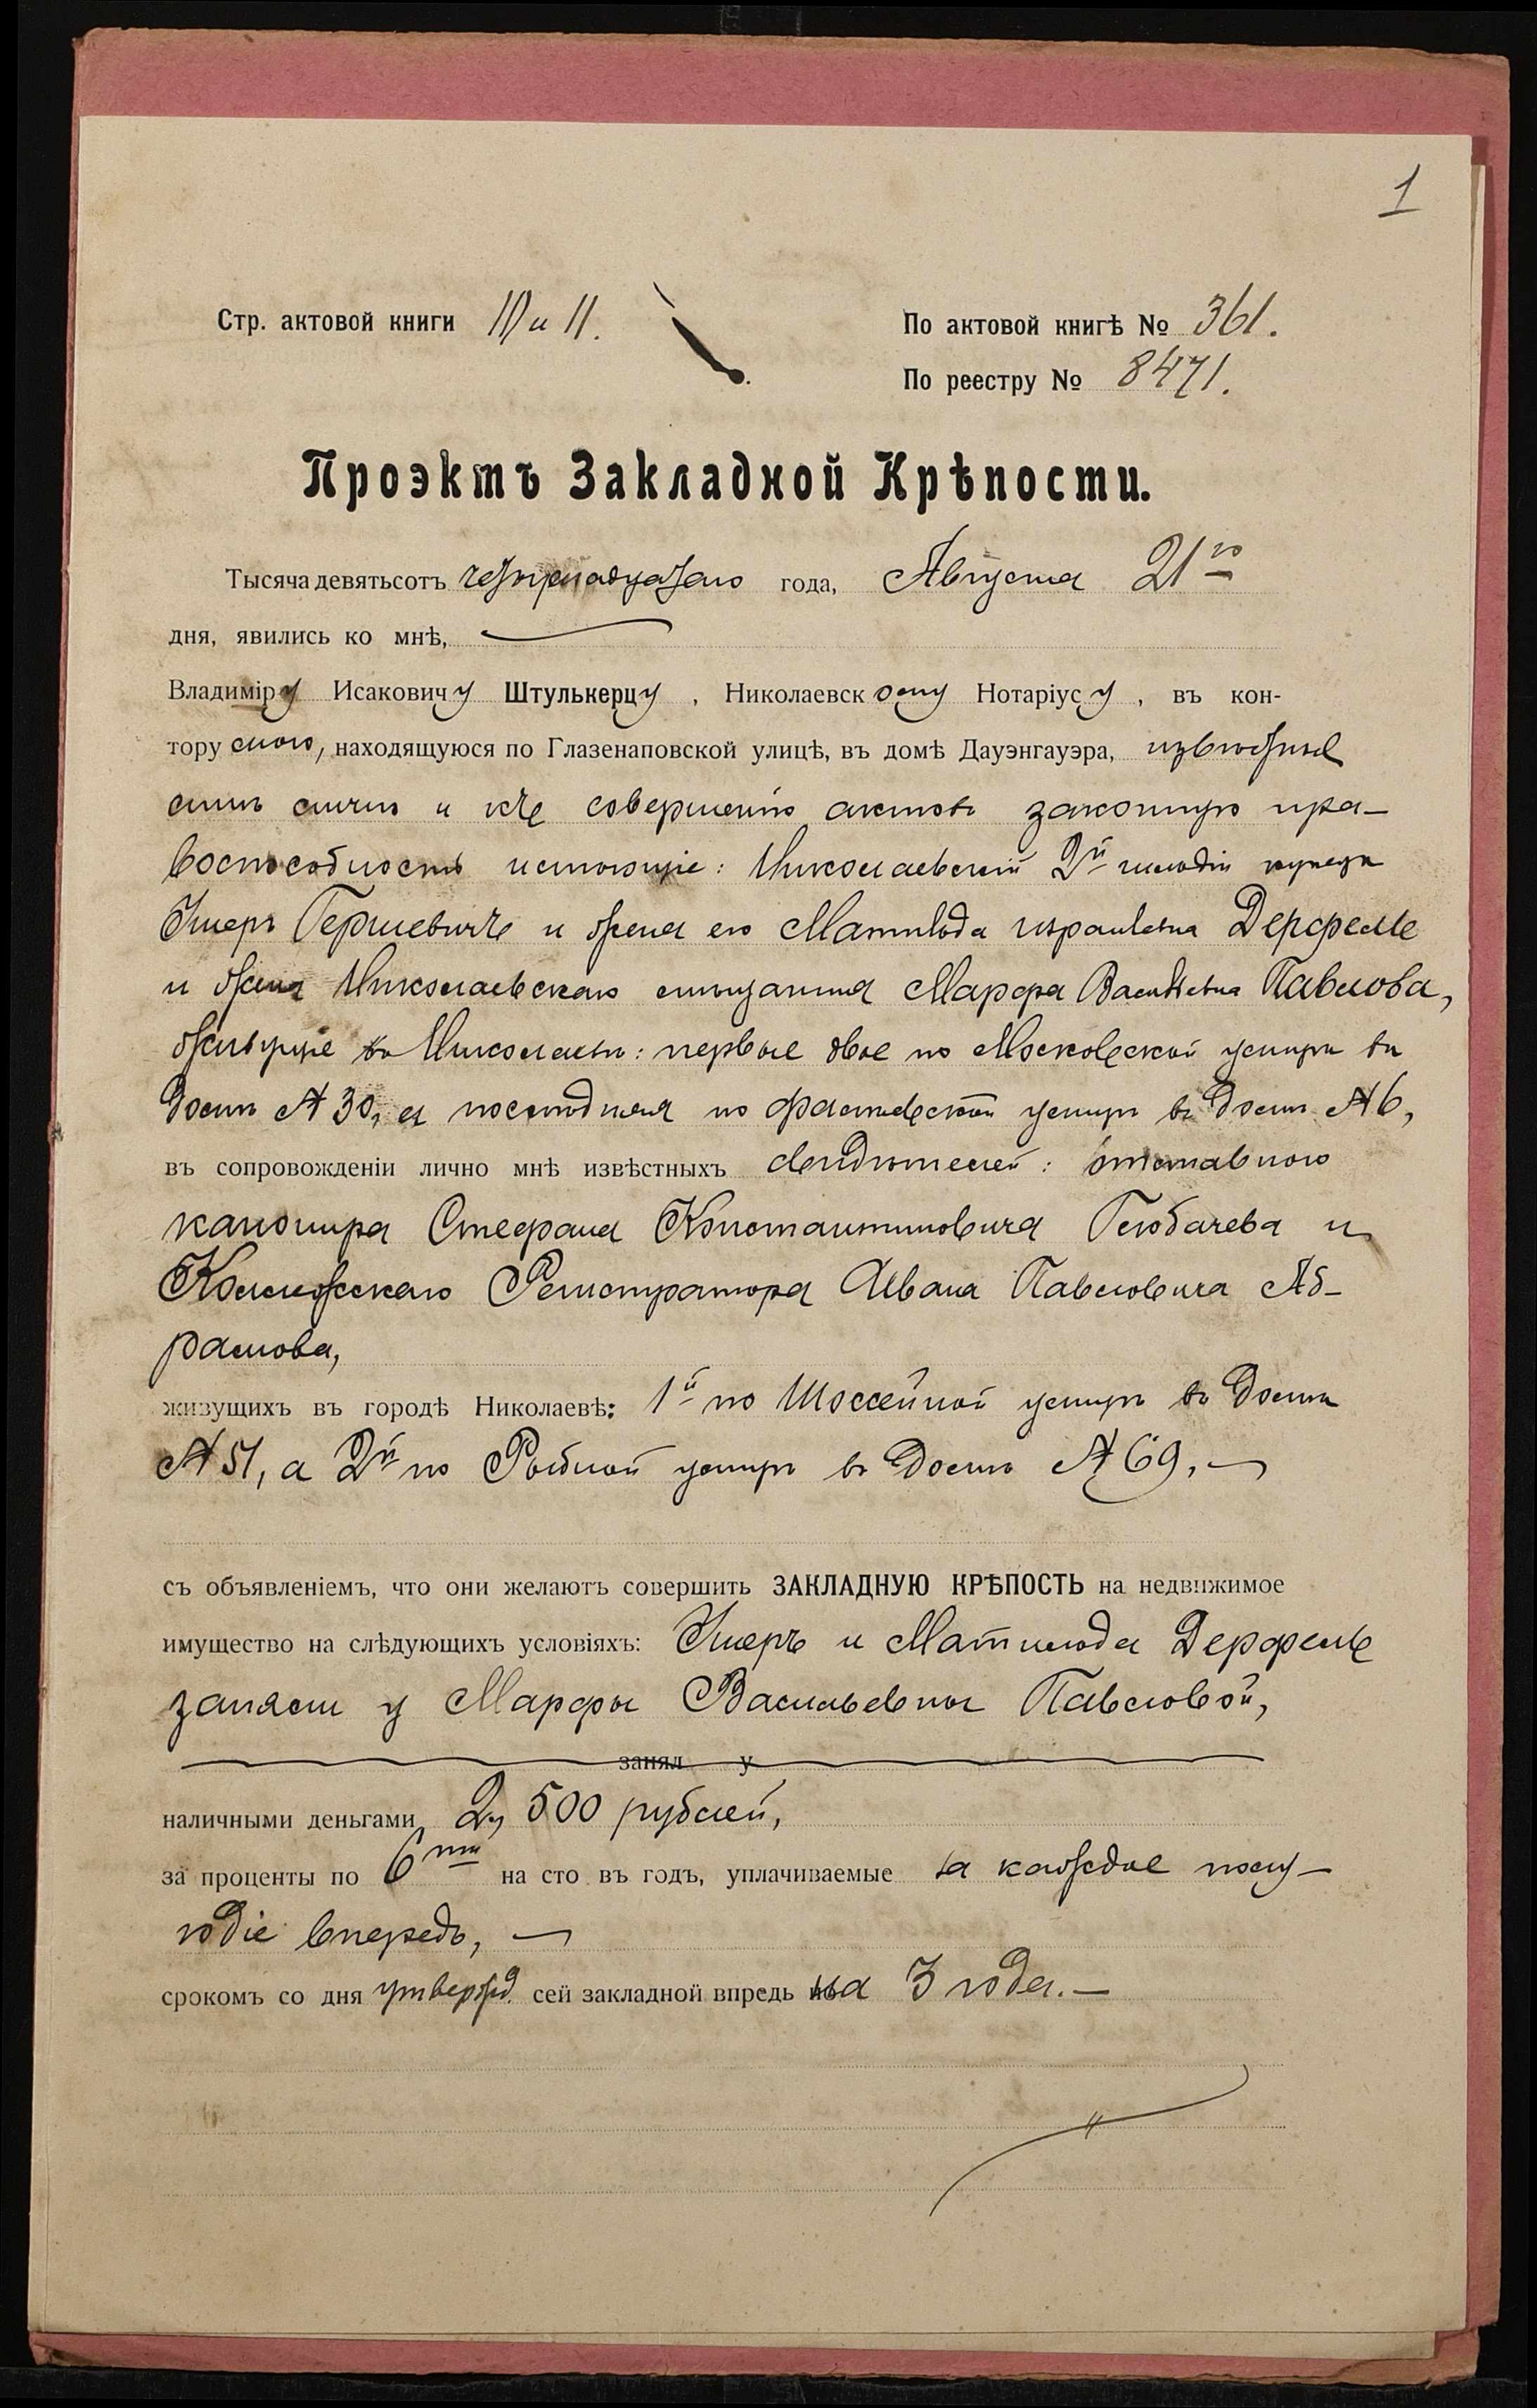 1
Стр. актовой книги 10 и 11.
По актовой книгѣ № 361.
По реестру № 8471.
Проэктъ Закладной Крѣпости.
Тысяча девятьсотъ четырнадцатаго года, Августа 21го
дня, явились ко мнѣ,
Владиміру Исаковичу Штулькерцу, Николаевскому Нотаріусу, въ кон-
тору мою, находящуюся по Глазенаповской улицѣ, въ домѣ Дауэнгауэра, извѣстные
мнѣ лично и къ совершенію актовъ законную пра-
воспособность имѣющіе: Николаевскій 2й гильдіи купецъ
Ушеръ Гершевичъ и жена его Матильда Израилевна Дерфель
и жена Николаевскаго мѣщанина Марфа Васильевна Павлова,
живущіе въ Николаевѣ: первые двое по Московской улицѣ въ
домѣ № 30, а послѣдняя по улицѣ въ домѣ № 6,
въ сопровожденіи лично мнѣ извѣстныхъ свидѣтелей: отставного
канонира Стефана Константиновича Глобачева и
Коллежскаго Регистратора Ивана Павловича Аб-
рамова,
живущихъ въ городѣ Николаевѣ: 1й по Шоссейной улицѣ въ домѣ
№ 51, а 2й по Рыбной улицѣ въ домѣ № 69,
съ объявленіемъ, что они желаютъ совершить ЗАКЛАДНУЮ КРѢПОСТЬ на недвижимое
имущество на слѣдующихъ условіяхъ: Ушеръ и Матильда Дерфель
заняли у Марфы Васильевны Павловой,
занял у
наличными деньгами 2,500 рублей,
за проценты по 6ти на сто въ годъ, уплачиваемые за каждое полу-
годіе впередъ,
срокомъ со дня утвержд. сей закладной впредь на 3 года.